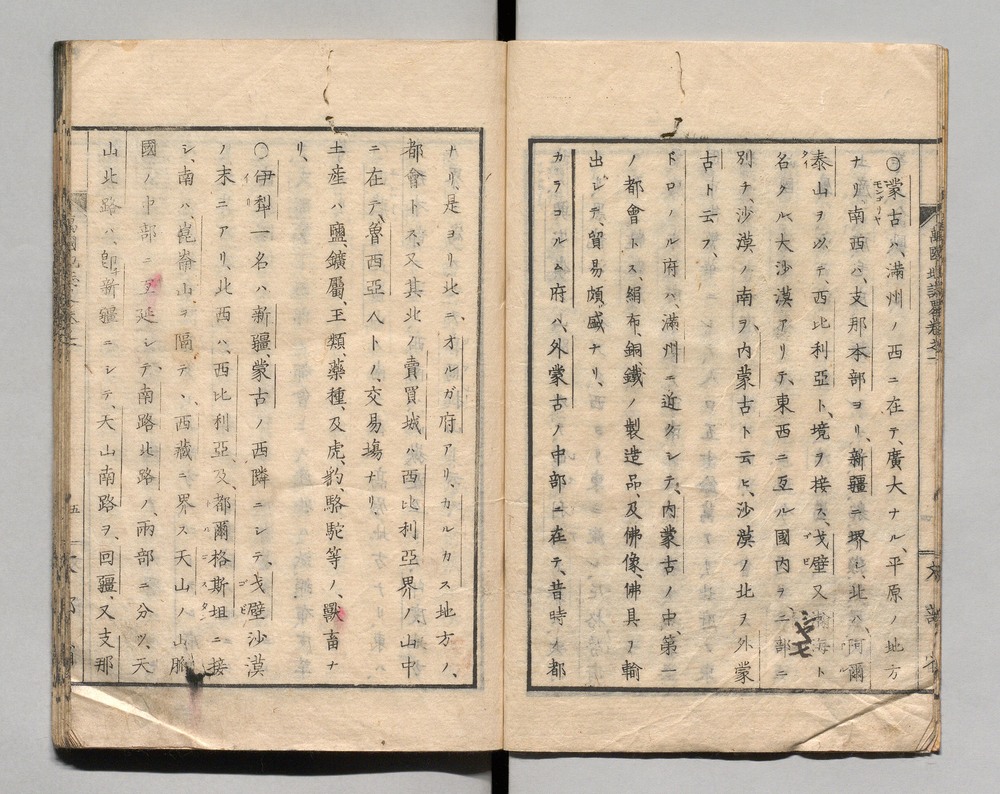 ○蒙古ハ、滿州ノ西ニ在テ、廣大ナル、平原ノ地方
モンゴリヤ
ナリ、南西ハ、支那本部ヨリ、新疆ニ堺シ、北ハ、阿爾
泰山ヲ以テ、西比利亞ト、境ヲ接ス、戈壁又瀚海ト
名クル、大沙漠アリテ、東西ニ亙ル、國内ヲ二部ニ
別チ、沙漠ノ南ヲ、内蒙古ト云ヒ、沙漠ノ北ヲ、外蒙
古ト云フ、
ドロノル府ハ、滿州ニ近クシテ、内蒙古ノ中、第一
ノ都會トス、絹布、銅鐵ノ製造品、及佛像、佛具ヲ輸
出シテ、貿易頗盛ナリ、
カラコルム府ハ、外蒙古ノ中部ニ在テ、昔時ノ大都
ナリ、是ヨリ北ニ、オルガ府アリ、カルカス地方ノ、
都會トス、又其北ノ賣買城ハ、西比利亞界ノ山中
ニ在テ、魯西亞人トノ、交易塲ナリ、
土産ハ、鹽、鑛屬、玉類、藥種、及虎、豹、駱駝等ノ、獸畜ナ
リ、
○伊犁一名ハ、新疆、蒙古ノ西隣ニシテ、戈壁沙漠
ノ末ニアリ、北西ハ、西比利亞及、都爾格斯坦ニ接
シ、南ハ、崑崙山ヲ隔テヽ、西藏ニ界ス、天山ハ、山脈
國ノ中部ニ亙延シテ、南路北路ノ、兩部ニ分ツ、天
山北路ハ、即新疆ニシテ、天山南路ヲ、回疆、又支那
五